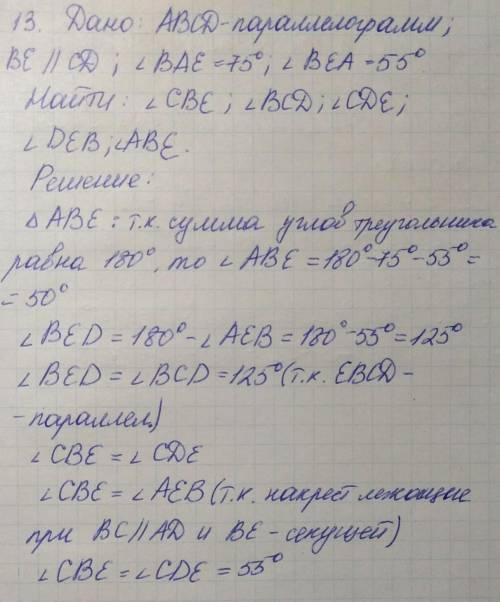 13. Дано: ABCD-параллелограмм;
BE // CD; ∠BAE =75°; ∠BEA =55°
Найти: ∠CBE; ∠BCD; ∠CDE;
∠DEB; ∠ABE.
Решение:
△ABE: т.к. сумма углов треугольника
равна 180°, то ∠ABE =180°-75°-55°=
=50°
∠BED = 180°-∠AEB = 180°-55°=125°
∠BED = ∠BCD =125°(т.к. EBCD-
-параллел.)
∠CBE = ∠CDE
∠CBE = ∠AEB (т.к. накрест лежащие
при BC//AD и BE - секущей)
∠CBE = ∠CDE = 55°